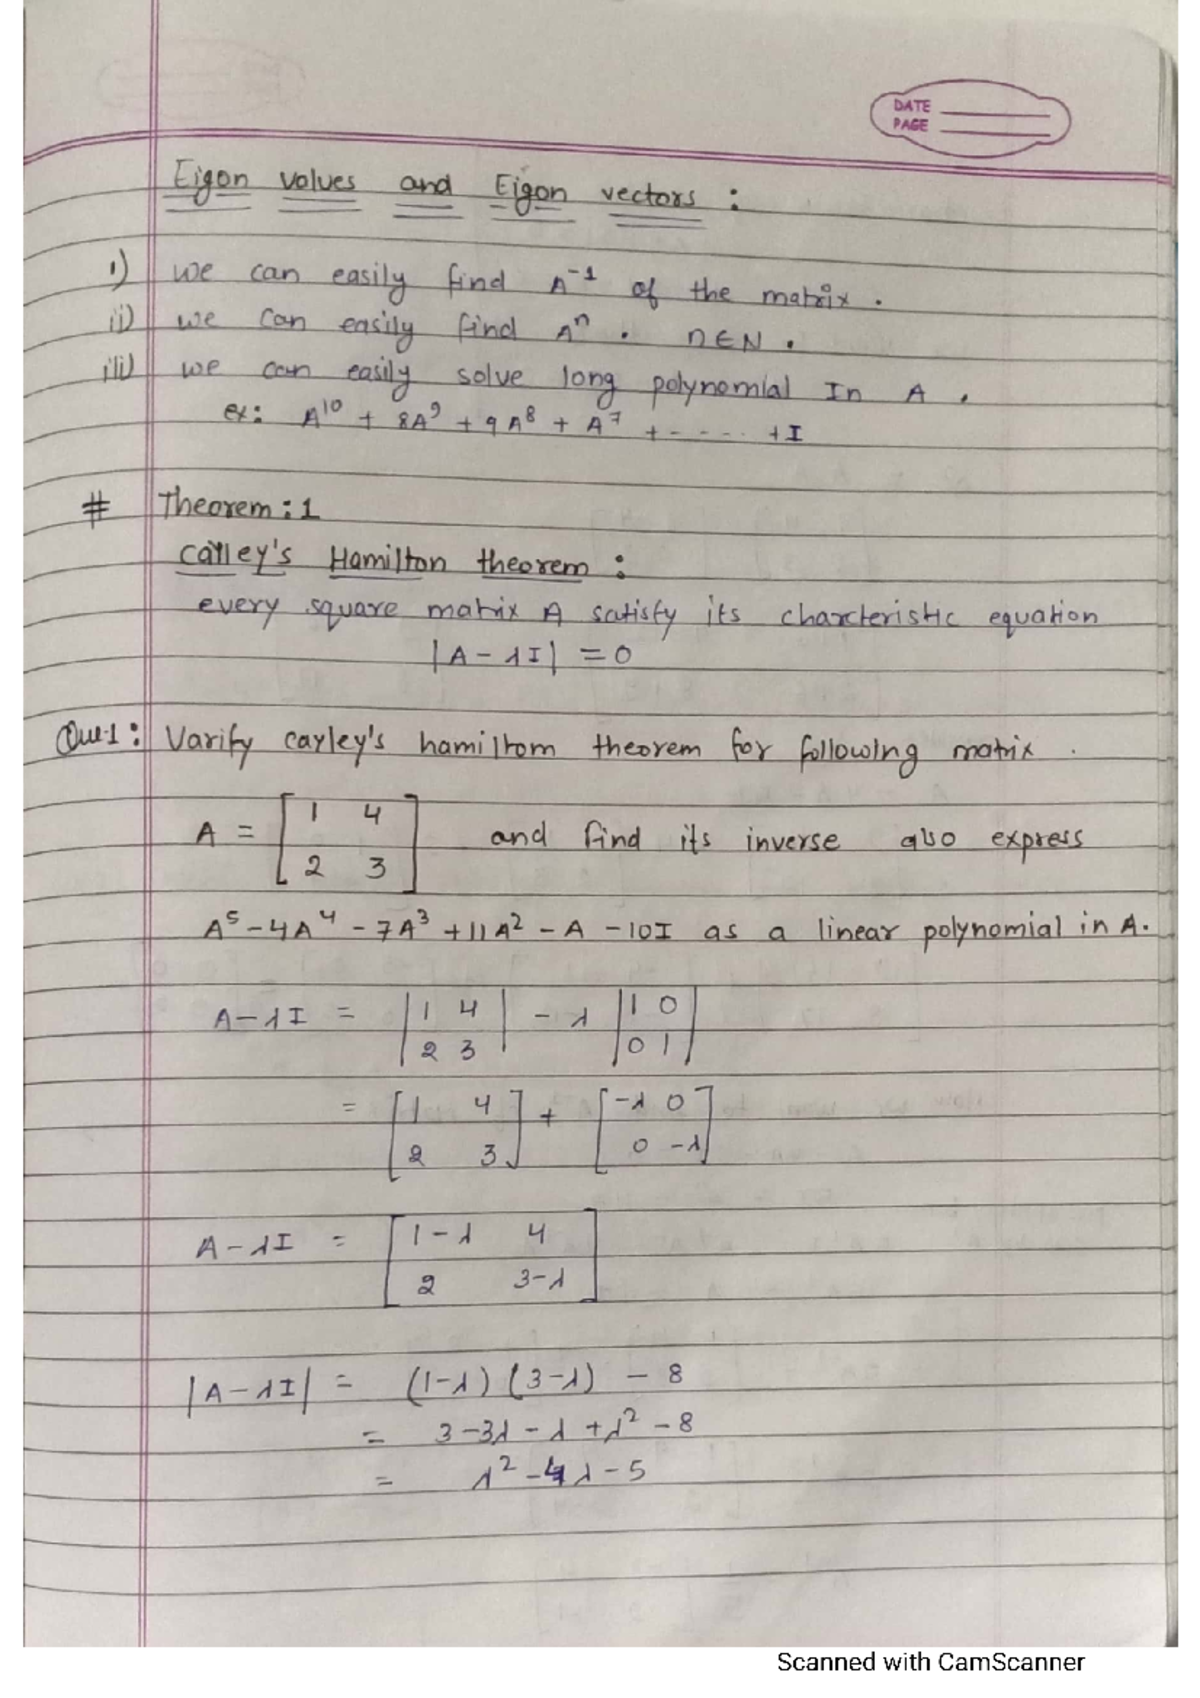 DATE
PAGE
Eigon values and Eigon vectors :
i) we can easily find A⁻¹ of the matrix .
ii) we can easily find Aⁿ . n∈N .
iii) we can easily solve long polynomial In A .
ex: A¹⁰ + 8A⁹ + 9A⁸ + A⁷ + - - - .. + I
# Theorem : 1
Cayley's Hamilton theorem :
every square matrix A satisfy its charcteristic equation
|A - λI| = 0
Que.1 : Varify cayley's hamiltom theorem for following matrix .
A = [ 1 4
2 3 ] and find its inverse also express
A⁵ - 4A⁴ - 7A³ + 11A² - A - 10I as a linear polynomial in A.
A - λI = | 1 4 | - λ | 1 0 |
| 2 3 | | 0 1 |
= [ 1 4 ] + [ -λ 0 ]
[ 2 3 ] [ 0 -λ ]
A - λI = [ 1 - λ 4 ]
[ 2 3 - λ ]
|A - λI| = (1-λ) (3-λ) - 8
= 3 - 3λ - λ + λ² - 8
= λ² - 4λ - 5
Scanned with CamScanner